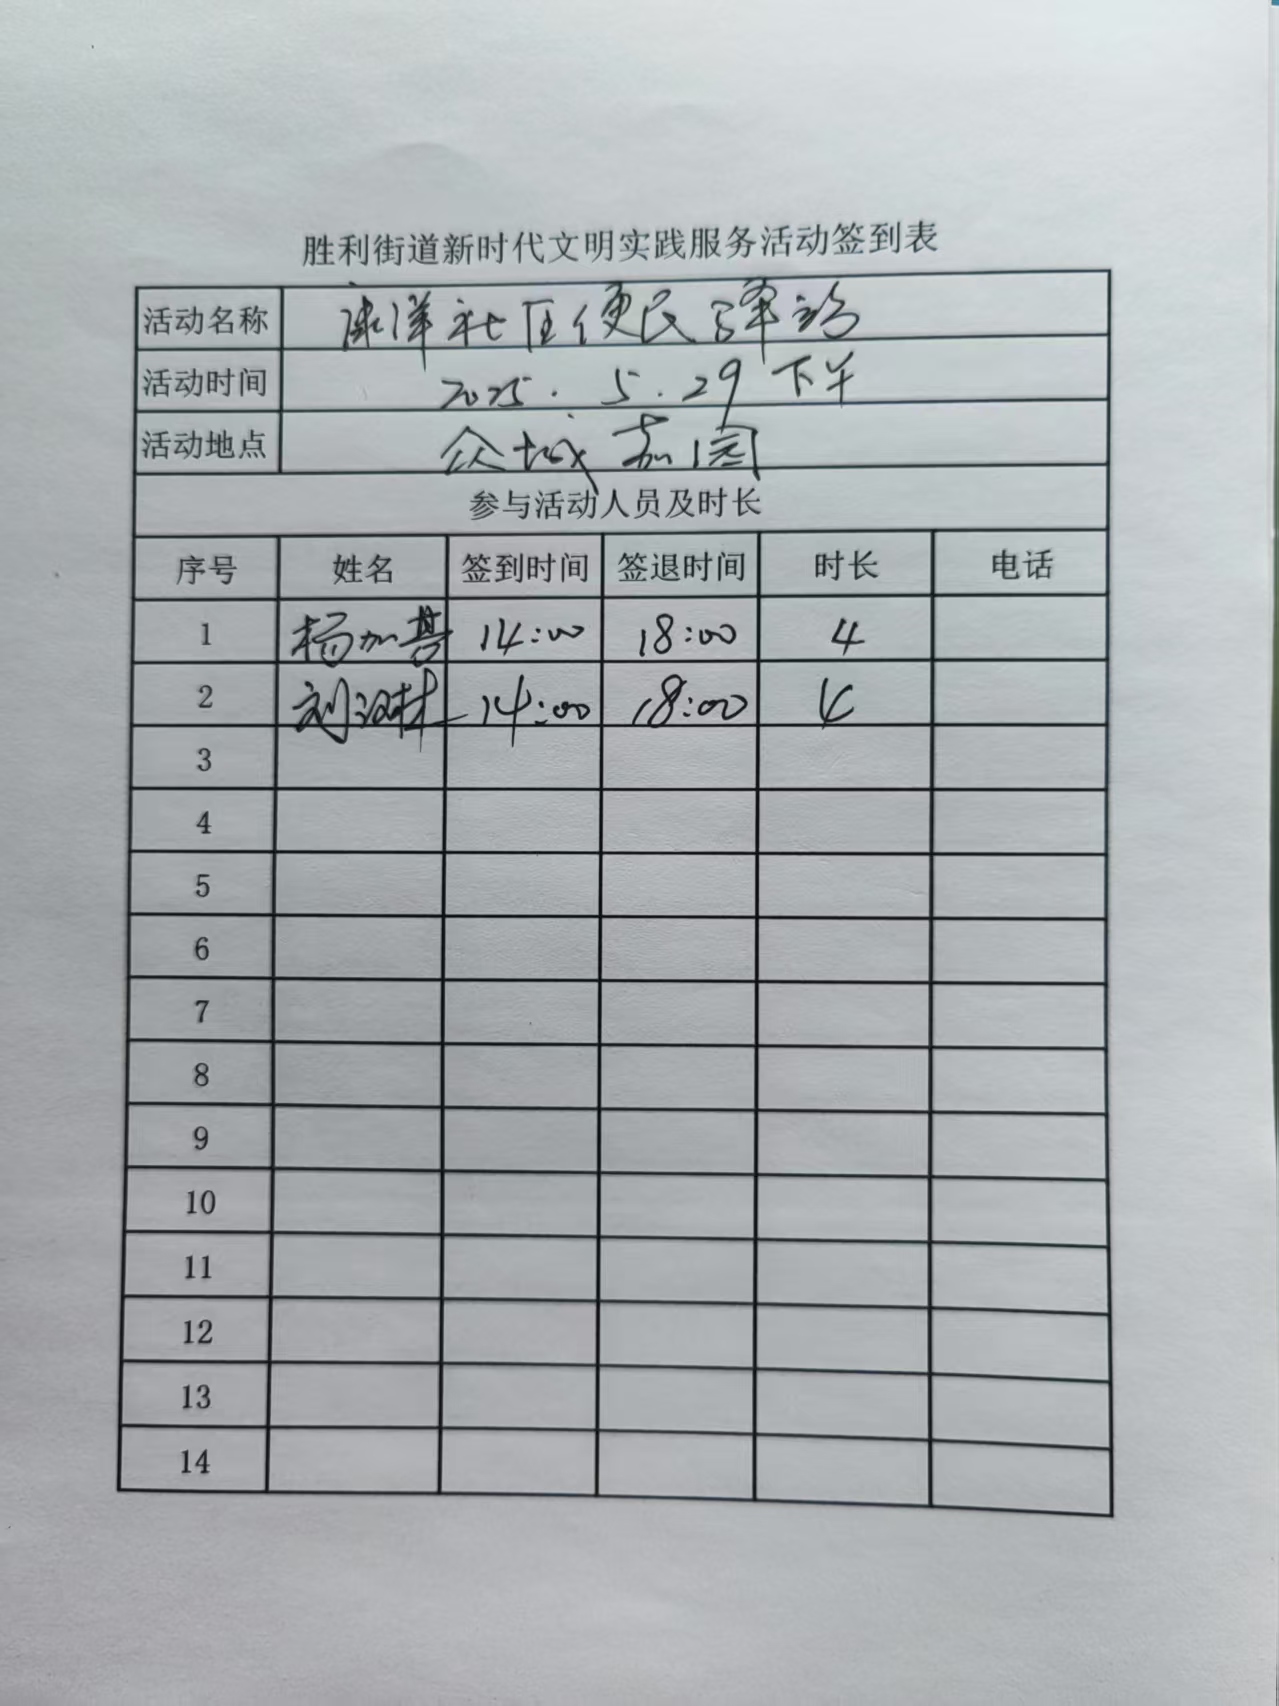 胜利街道新时代文明实践服务活动签到表
活动名称 康洋社区便民驿站
活动时间 2025.5.29下午
活动地点 众城嘉园
参与活动人员及时长
序号 姓名 签到时间 签退时间 时长 电话
1 杨加 14:00 18:00 4
2 刘汉林 14:00 18:00 4
3
4
5
6
7
8
9
10
11
12
13
14